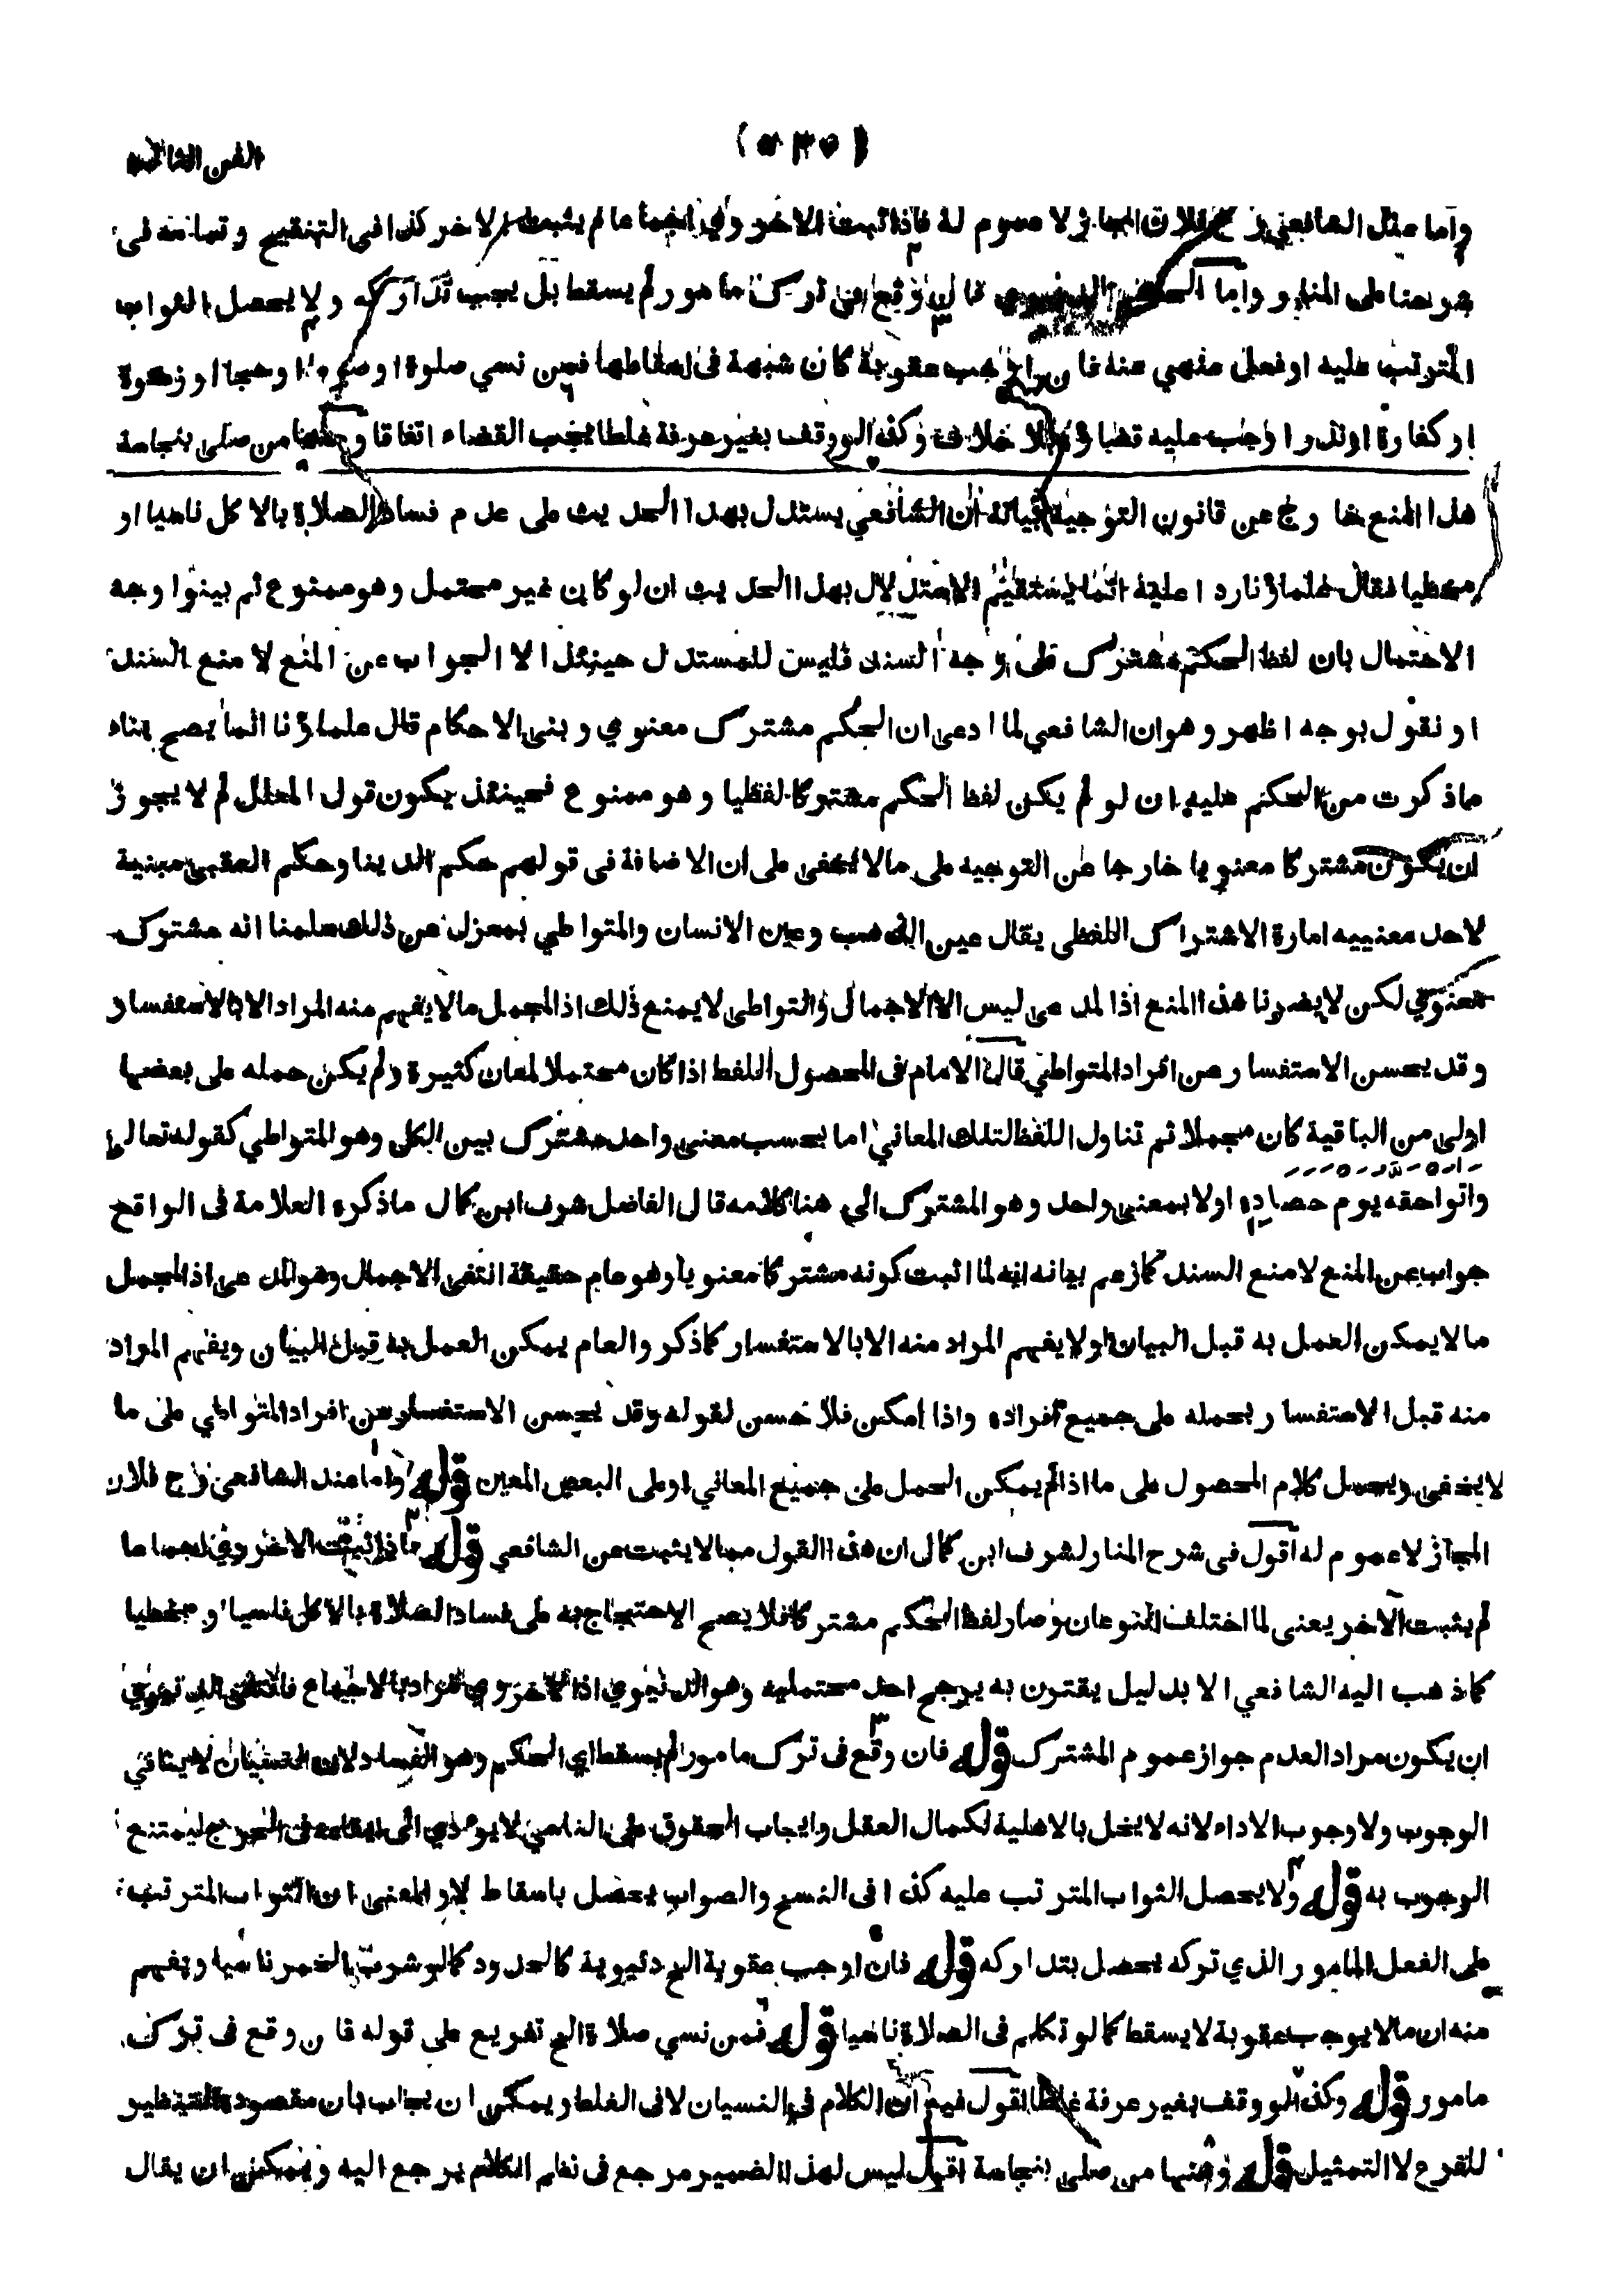 الفن الثالث
واما عند الشافعي رح فلان المجاز لا عموم له فاذا ثبت الاخروي اجماعا لم يثبت الاخر كذا في التنقيح وتمامه في
شرحنا على المنار واما الحكم الدنيوي فان وقع في ترك مامور لم يسقط بل يجب تداركه ولا يحصل الثواب
المترتب عليه او فعل منهي عنه فان اوجب عقوبة كان شبهة في اسقاطها فمن نسي صلوة او صوما او حجا او زكوة
او كفارة او نذرا وجب عليه قضاؤه بلا خلاف وكذا لو وقف بغير عرفة غلطا يجب القضاء اتفاقا ومنها من صلى بنجاسة
هذا المنع خارج عن قانون التوجيه بيانه ان الشافعي يستدل بهذا الحديث على عدم فساد الصلاة بالاكل ناسيا او
مخطيا فقال علماؤنا ردا عليه انما يستقيم الاستدلال بهذا الحديث ان لو كان غير محتمل وهو ممنوع ثم بينوا وجه
الاحتمال بان لفظ الحكم مشترك على وجه السند فليس للمستدل حينئذ الا الجواب عن المنع لا منع السند
او نقول بوجه اظهر وهو ان الشافعي لما ادعى ان الحكم مشترك معنوي وبنى الاحكام قال علماؤنا انما يصح بناء
ماذكرت من الحكم عليه ان لو لم يكن لفظ الحكم مشتركا لفظيا وهو ممنوع فحينئذ يكون قول المعلل لم لا يجوز
ان يكون مشتركا معنويا خارجا عن التوجيه على مالا يخفى على ان الاضافة في قولهم حكم الدينا وحكم العقبى مبنية
لاحد معنييه امارة الاشتراك اللفظي يقال عين الذهب وعين الانسان والمتواطي بمعزل عن ذلك سلمنا انه مشترك
معنوي لكن لا يضرنا هذا المنع اذا لمدعى ليس الا الاجمال والتواطى لا يمنع ذلك اذ المجمل مالا يفهم منه المراد الا بالاستفسار
وقد يحسن الاستفسار عن افراد المتواطي قال الامام في المحصول اللفظ اذا كان محتملا لمعان كثيرة ولم يكن حمله على بعضها
اولى من الباقية كان مجملا ثم تناول اللفظ لتلك المعاني اما بحسب معنى واحد مشترك بين الكل وهو المتواطي كقوله تعالى
واتواحقه يوم حصاده اولا بمعنى واحد وهو المشترك الى هنا كلامه قال الفاضل شرف ابن كمال ماذكره العلامة في الواقع
جواب عن المنع لا منع السند كما زعم بيانه انه لما اثبت كونه مشتركا معنويا وهو عام حقيقة انتفى الاجمال وهو المدعى اذ المجمل
مالا يمكن العمل به قبل البيان او لا يفهم المراد منه الا بالاستفسار كما ذكر والعام يمكن العمل به قبل البيان ويفهم المراد
منه قبل الاستفسار بحمله على جميع افراده واذا امكن فلا حسن لقوله وقد يحسن الاستفسار عن افراد المتواطي على ما
لا يخفى ويحمل كلام المحصول على ما اذا لم يمكن الحمل على جميع المعاني او على البعض المعين قوله واما عند الشافعي رح فلان
المجاز لا عموم له اقول في شرح المنار لشرف ابن كمال ان هذا القول مما لا يثبت عن الشافعي قوله فاذا ثبت الاخروي اجماعا
لم يثبت الاخر يعنى لما اختلف النوعان وصار لفظ الحكم مشتركا فلا يصح الاحتجاج به على فساد الصلاة بالاكل ناسيا و مخطيا
كما ذهب اليه الشافعي الا بدليل يقترن به يرجح احد محتمليه وهو الدنيوي اذ الاخروي مراد بالاجماع فانتفى الدنيوي
ان يكون مراد العدم جواز عموم المشترك قوله فان وقع في ترك مامور لم يسقط اي الحكم وهو الفساد لان النسيان لا ينافي
الوجوب ولا وجوب الاداء لانه لا يخل بالاهلية لكمال العقل وايجاب الحقوق على الناسي لا يودي الى ايقاعه في الحرج ليمتنع
الوجوب به قوله ولا يحصل الثواب المترتب عليه كذا في النسخ والصواب يحصل باسقاط لا و المعنى ان الثواب المترتب
على الفعل المامور الذي تركه يحصل بتداركه قوله فان اوجب عقوبة الخ دنيوية كالحدود كما لو شرب الخمر ناسيا ويفهم
منه ان مالا يوجب عقوبة لا يسقط كما لو تكلم في الصلاة ناسيا قوله فمن نسي صلاة الخ تفريع على قوله فان وقع في ترك
مامور قوله وكذا لو وقف بغير عرفة غلطا اقول فيه ان الكلام في النسيان لا في الغلط ويمكن ان يجاب بان مقصوده التنظير
للفرع لا التمثيل قوله ومنها من صلى بنجاسة اقول ليس لهذا الضمير مرجع في نظم الكلام يرجع اليه ويمكن ان يقال